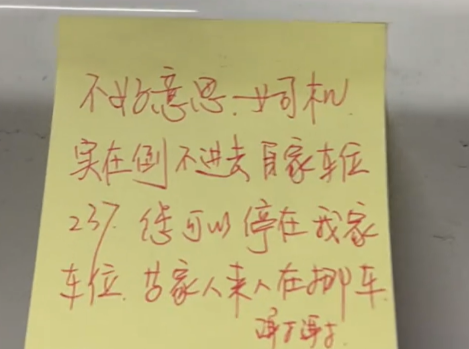 不好意思.女司机
实在倒不进去自家车位
237.您可以停在我家
车位.等家人来人在挪车
谢谢